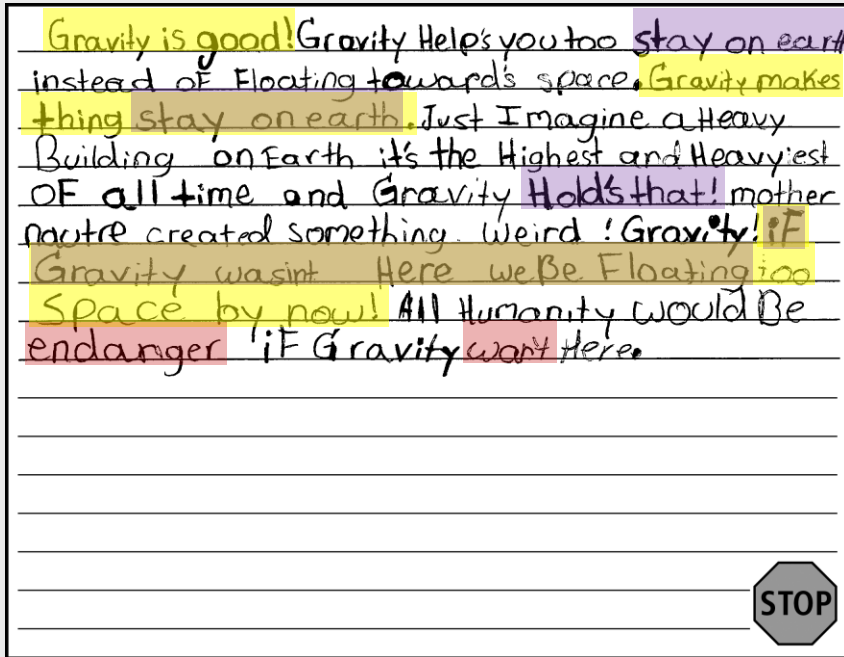 Gravity is good! Gravity Help's you too stay on earth
instead of Floating toward's space. Gravity makes
thing stay on earth. Just Imagine a Heavy
Building on Earth it's the Highest and Heavyiest
OF all time and Gravity Hold's that! mother
nautre created something Weird! Gravity! iF
Gravity wasint Here we Be Floating too
Space by now! All Humanity would Be
endanger iF Gravity want Here.
STOP